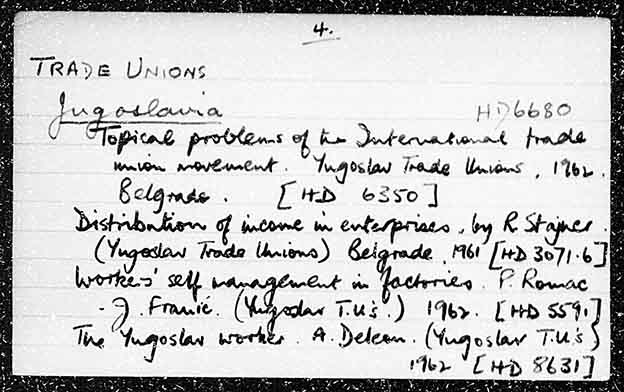 4.
TRADE UNIONS
Jugoslavia HD6680
Topical problems of the International trade
union movement. Yugoslav Trade Unions, 1962.
Belgrade. [HD 6350]
Distribution of income in enterprises, by R Stajner.
(Yugoslav Trade Unions) Belgrade, 1961 [HD 3071.6]
Workers' self management in factories. P. Romac
- J. Franic. (Yugoslav T.U's.) 1962. [HD 5591]
The Yugoslav worker. A. Deleon. (Yugoslav T.U's)
1962 [HD 8631]